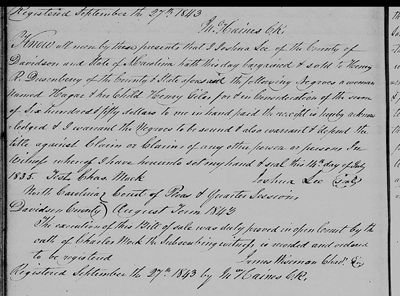 Registered September the 27th 1843
Th. Haines C.R.
Know all men by these presents that I Joshua Lee of the County of
Davidson and State of N Carolina hath this day bargained & sold to Henry
R. Dusenbery of the County & State aforesaid the following Negroes a woman
named Hagar & her Child Henry Giles for & in Consideration of the sum
of Six hundred & fifty dollars to me in hand paid the receipt is hereby acknow
ledged & I warrant the Negroes to be sound & also warrant & defend the
title against Claim or Claims of any other power or persons In
witness whereof I have hereunto set my hand & seal this 14th day of
1835. Test Chas. Mock Joshua Lee (seal)
North Carolina } Court of Pleas & Quarter Sessions
Davidson County } August Term 1843
The execution of this Bill of sale was duly proved in open Court by the
oath of Charles Mock the Subscribing witness, is recorded and ordered
to be registered James Wiseman
Registered September the 27th 1843 by Th Haines C.R.